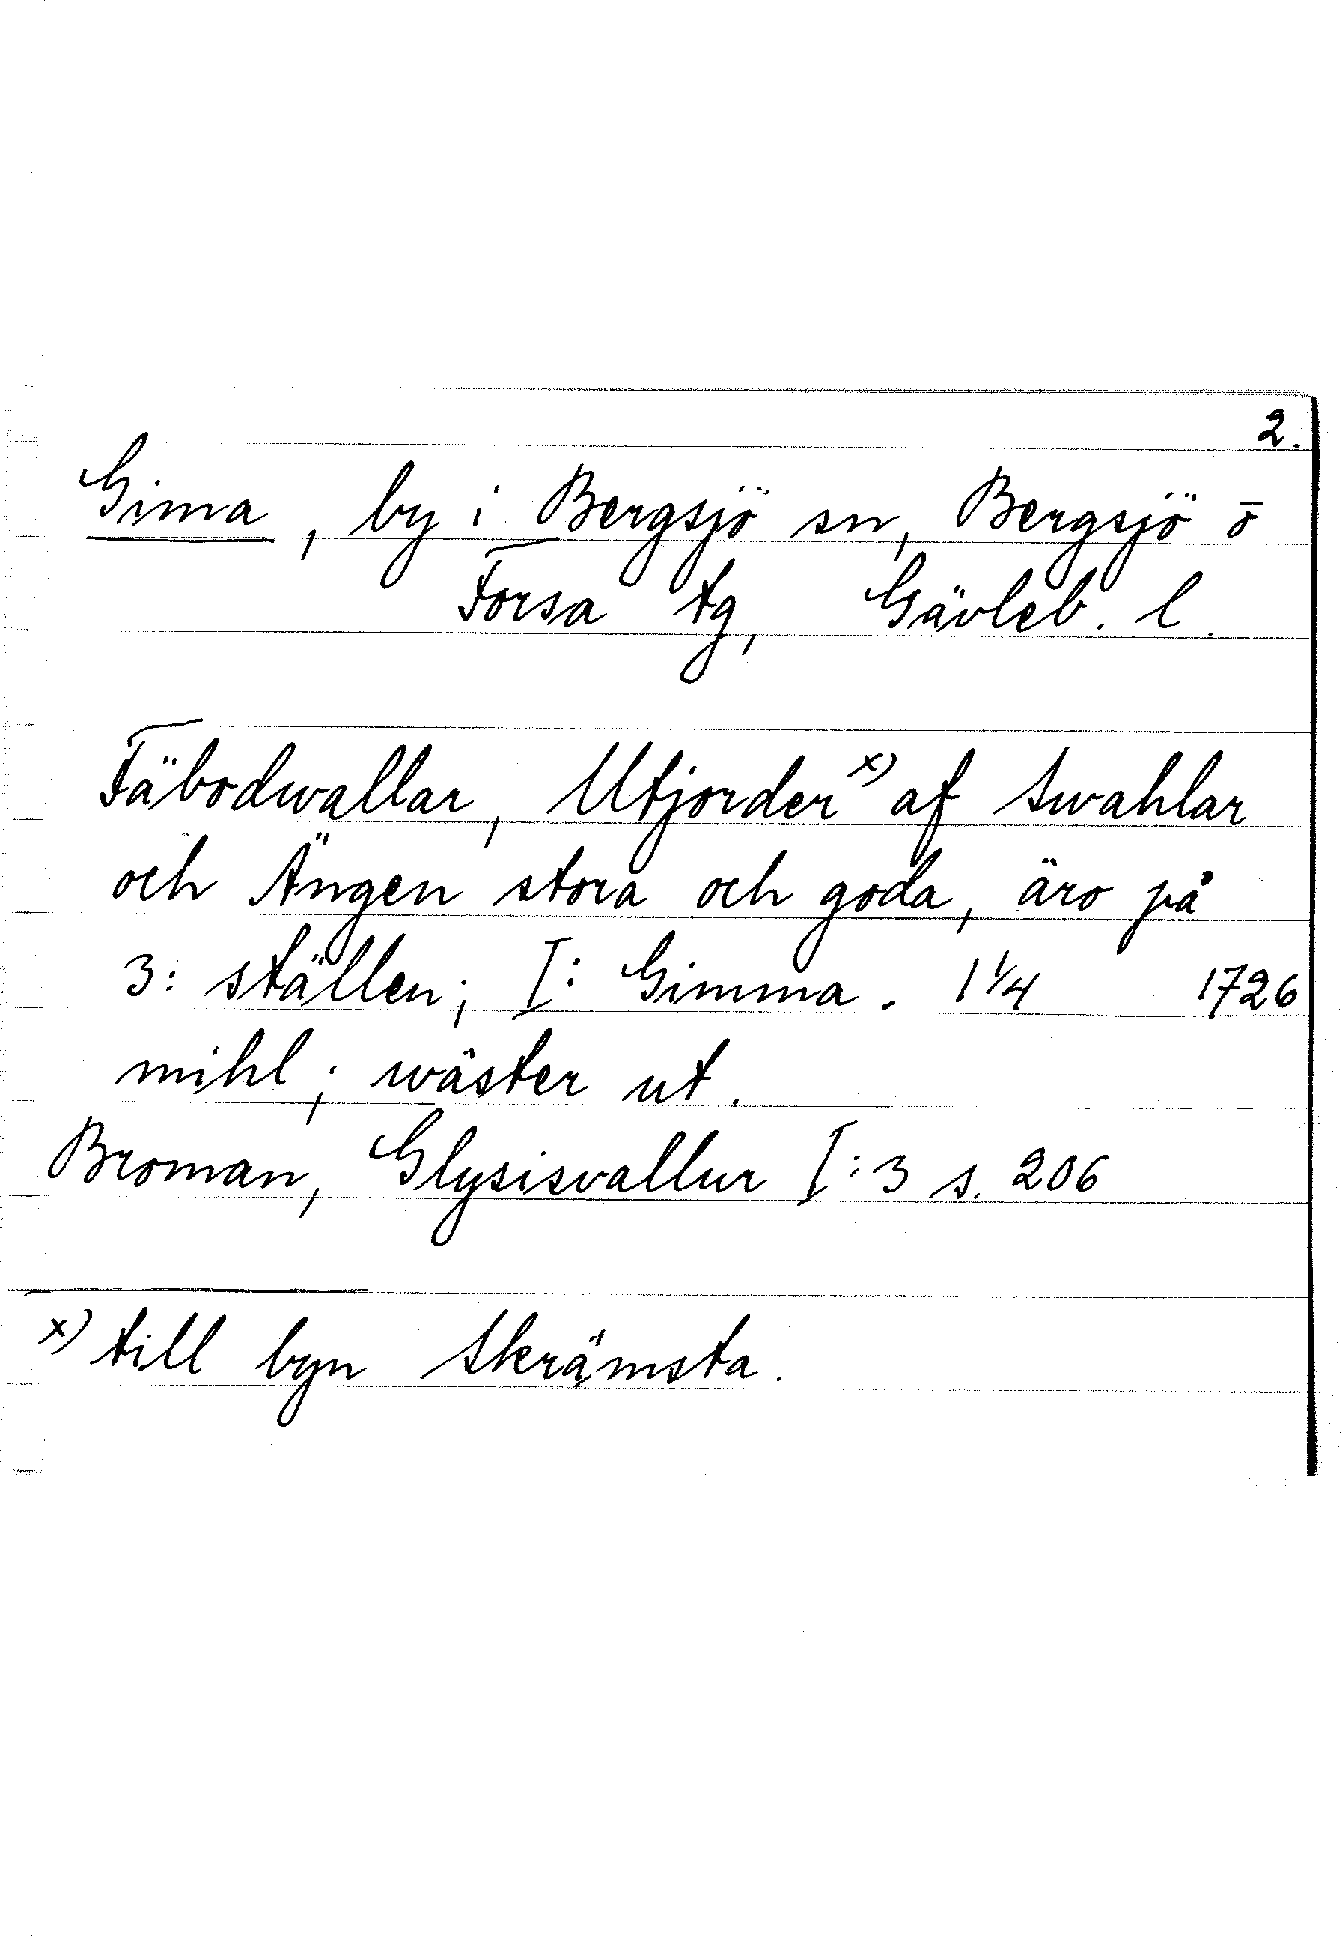 2.
Gima, by i Bergsjö sn, Bergsjö o
Forsa tg, Gävleb. l.
Fäbodwallar, Utjorder x) af Swahlar
och Ängen stora och goda, äro på
3: ställen; I: Gimma. 1 1/4 1726
mihl; wäster ut.
Broman, Glysisvallur I:3 s. 206
x) till byn Skrämsta.